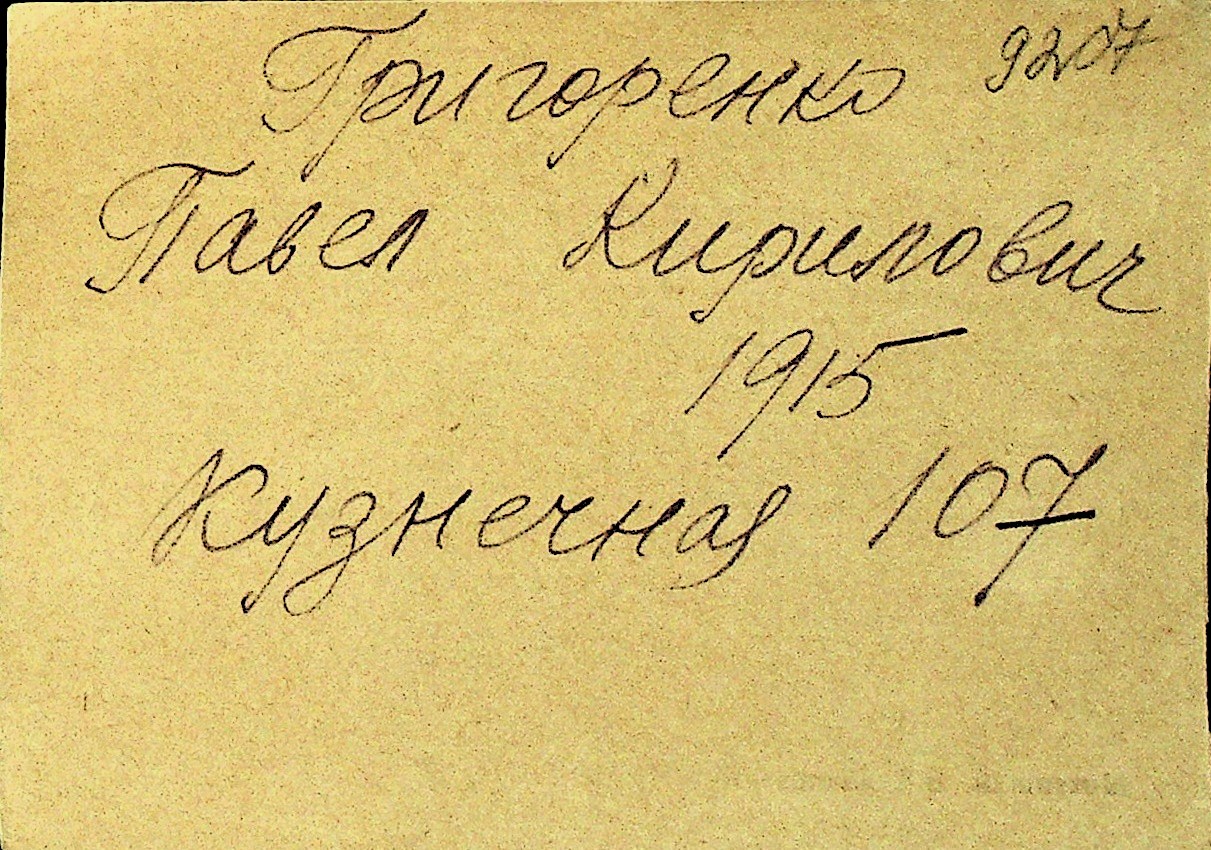 Григоренко 9207
Павел Кирилович
1915
Кузнечная 107